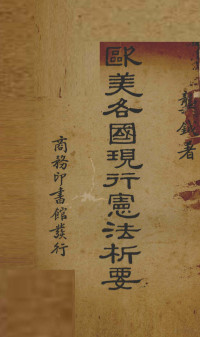 龔鉞著
歐美各國現行憲法析要
商務印書館發行